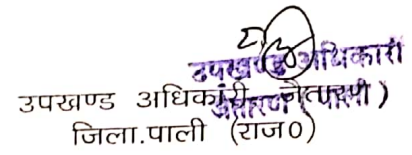 उपखण्ड अधिकारी
उपखण्ड अधिकारी, जैतारण
जैतारण (पाली)
जिला.पाली (राज०)